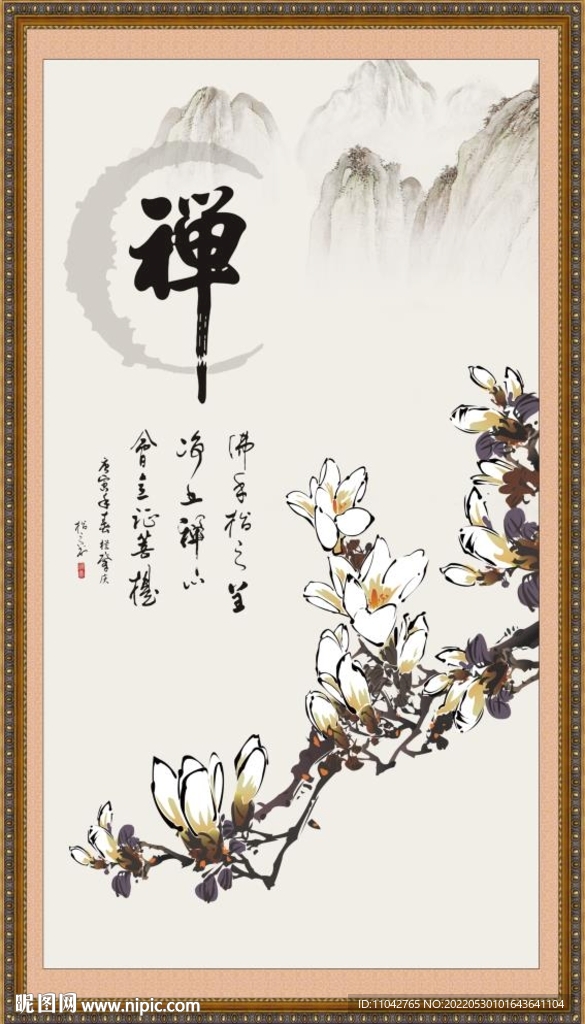 禅
佛手指
土禪心
會立证菩提
庚寅年春 肇庆
昵图网 www.nipic.com
ID:11042765 NO:20220530101643641104